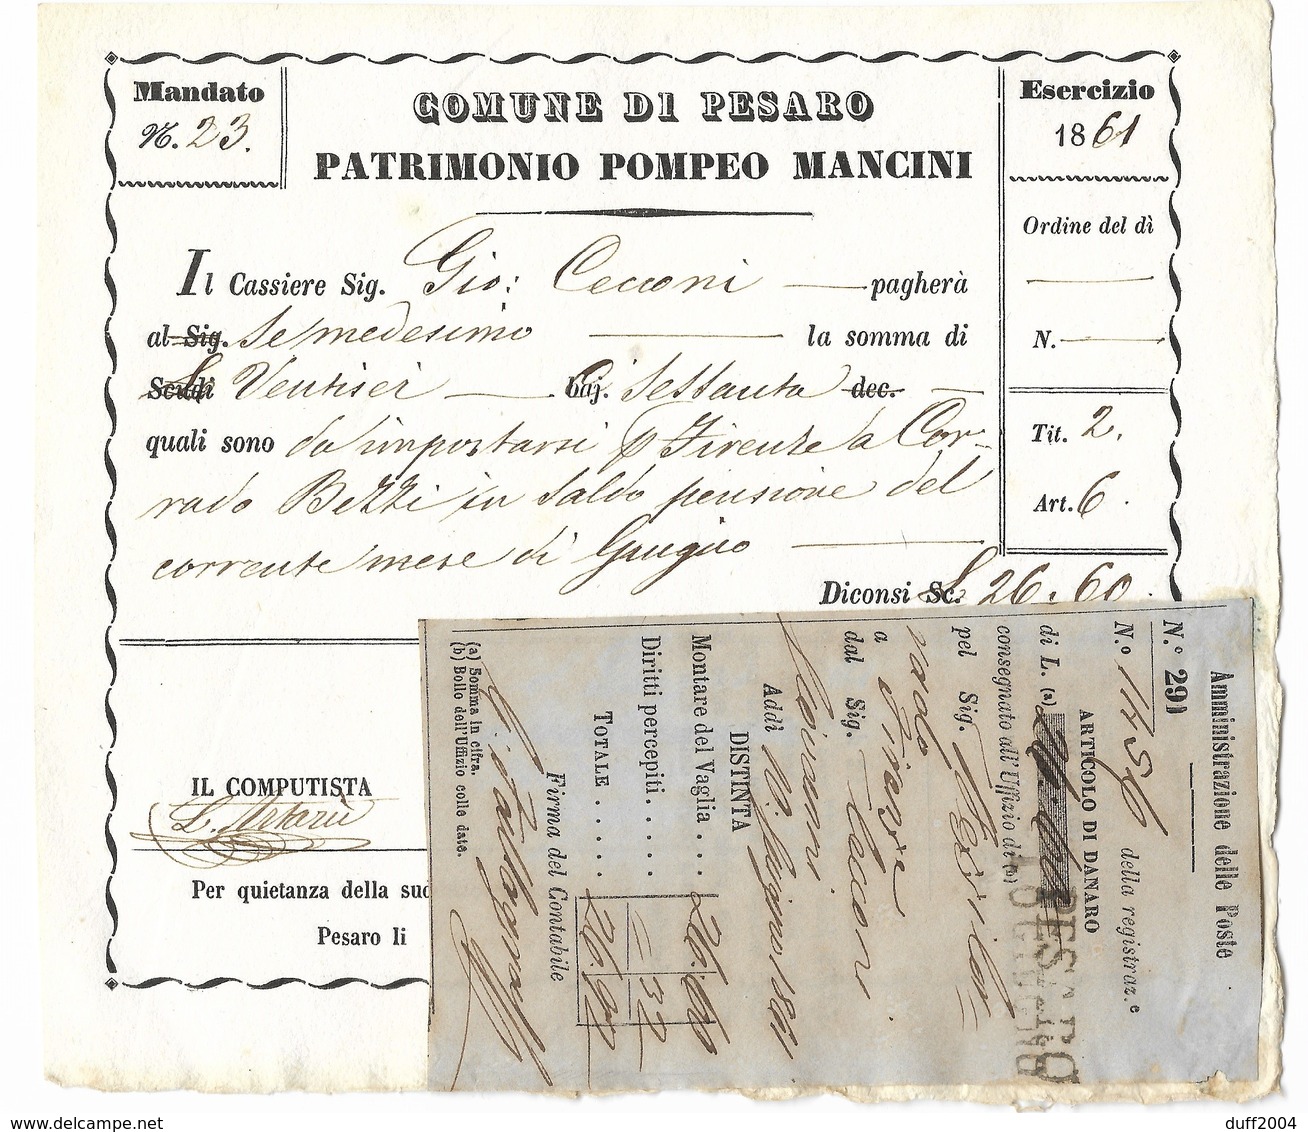 Mandato
N. 23.
COMUNE DI PESARO
PATRIMONIO POMPEO MANCINI
Esercizio
1861
Ordine del dì
N.
Tit. 2.
Art. 6.
Il Cassiere Sig. Gio: Cecconi pagherà
al Sig. Se medesimo la somma di
Scudi Ventisei baj. Sessanta dec.
quali sono da impostarsi p Firenze a Cor-
rado Bezzi in Saldo pensione del
corrente mese di Giugno
Diconsi Sc. L 26.60.
IL COMPUTISTA
Per quietanza della sud
Pesaro li
Amministrazione delle Poste
N.° 291
N.° 1756 della registraz.e
ARTICOLO DI DANARO
di L. (a)
consegnato all'Uffizio di (b)
PESARO
pel Sig.
a Firenze
dal Sig. Cecconi
Giovanni
Addì 1861
DISTINTA
Montare del Vaglia . . 26.60
Diritti percepiti . . . . = 32
TOTALE . . . . 26 92
Firma del Contabile
(a) Somma in cifra.
(b) Bollo dell'Uffizio colla data.
delcampe.net
duff2004